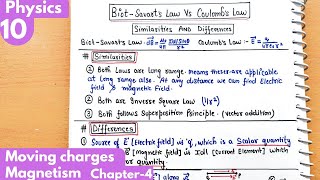 Physics
10
Biot-Savart's Law Vs Coulomb's Law
Similarities And Differences
Biot-Savart's Law :- Coulomb's Law :-
# Similarities
① Both Laws are long range. means these are applicable
at long range also. At any distance we can find Electric
field & magnetic field.
② Both are Inverse Square Law (1/r²)
③ Both follows Superposition Principle. (vectors addition)
# Differences
① Source of E [Electric field] is 'q', which is a Scalar quantity
[magnetic field] is Idl [Current Element] which
quantity
Moving charges
Magnetism Chapter-4